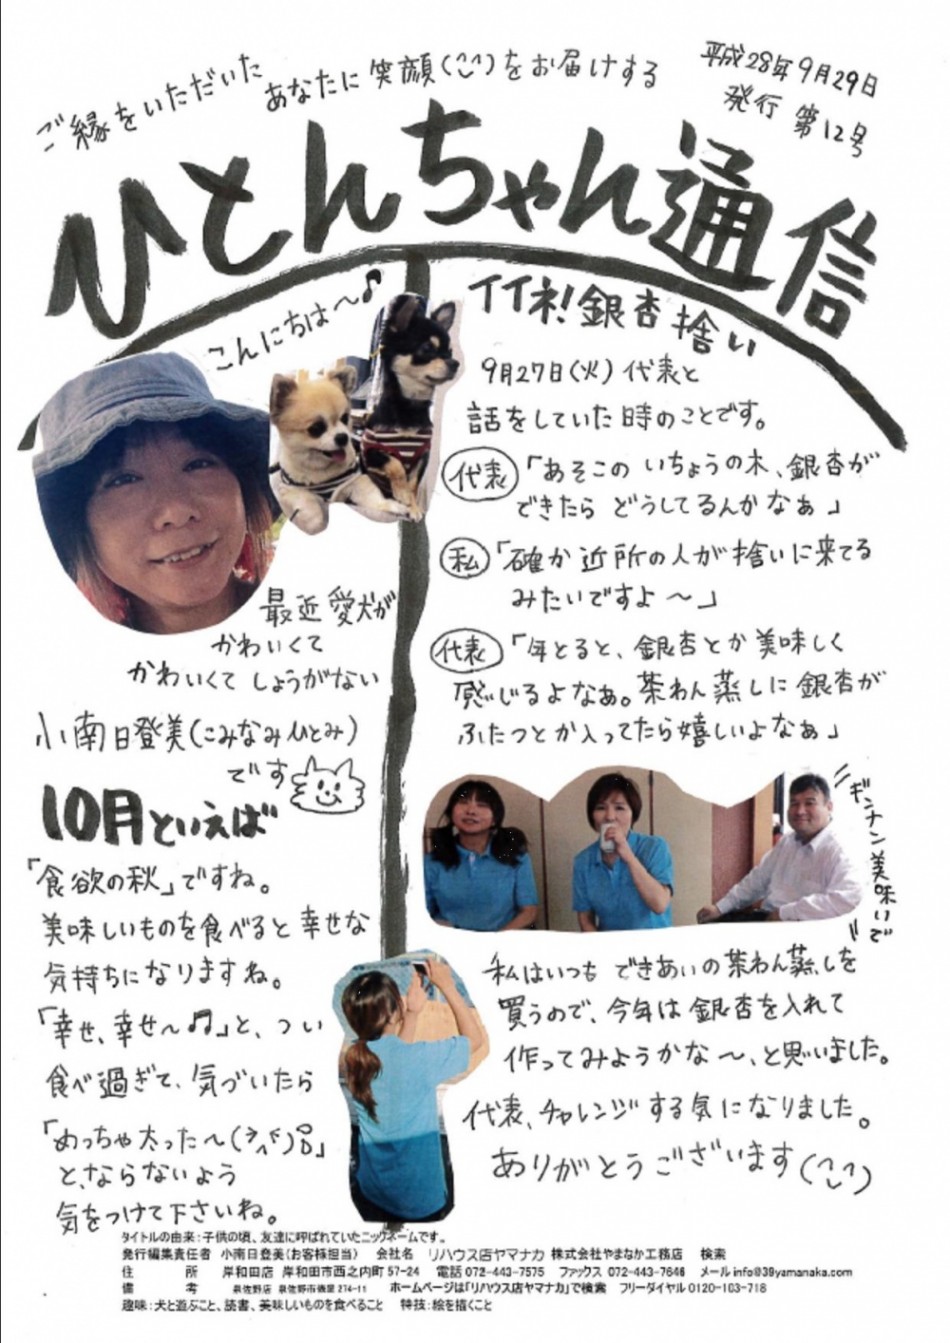 ご縁をいただいた
あなたに笑顔(^^)をお届けする
平成28年9月29日
発行 第12号
ひとんちゃん通信
こんにちは〜♪
最近愛犬が
かわいくて
かわいくてしょうがない
小南日登美(こみなみひとみ)
です
10月といえば
「食欲の秋」ですね。
美味しいものを食べると幸せな
気持ちになりますね。
「幸せ、幸せ〜♫」と、つい
食べ過ぎて、気づいたら
「めっちゃ太った〜
と、ならないよう
気をつけて下さいね。
イイネ!銀杏捨い
9月27日(火)代表と
話をしていた時のことです。
代表「あそこの いちょうの木、銀杏が
できたら どうしてるんかなぁ」
私「確か近所の人が捨いに来てる
みたいですよ〜」
代表「年とると、銀杏とか美味しく
感じるよなぁ。茶わん蒸しに銀杏が
ふたつとか入ってたら嬉しいよなぁ」
ギンナン美味いで
私はいつも できあいの茶わん蒸しを
買うので、今年は銀杏を入れて
作ってみようかな〜、と思いました。
代表、チャレンジする気になりました。
ありがとうございます(^^)
タイトルの由来：子供の頃、友達に呼ばれていたニックネームです。
発行編集責任者 小南日登美(お客様担当) 会社名 リハウス店ヤマナカ 株式会社やまなか工務店 検索
住 所 岸和田店 岸和田市西之内町57-24 電話 072-443-7575 ファックス 072-443-7646 メール info@39yamanaka.com
備 考 泉佐野店 泉佐野市 274-11 ホームページは「リハウス店ヤマナカ」で検索 フリーダイヤル 0120-103-718
趣味：犬と遊ぶこと、読書、美味しいものを食べること 特技：絵を描くこと